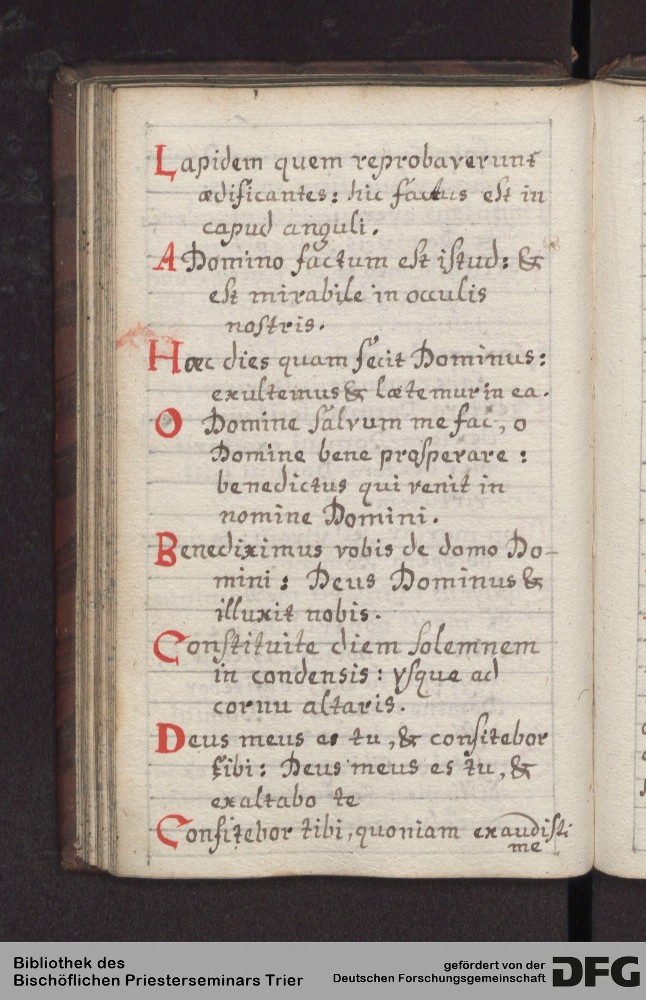 Lapidem quem reprobaverunt
ædificantes: hic factus est in
capud anguli.
A Domino factum est istud: &
est mirabile in occulis
nostris.
Hæc dies quam fecit Dominus:
exultemus & lætemur in ea.
O Domine salvum me fac, o
Domine bene prosperare:
benedictus qui venit in
nomine Domini.
Benediximus vobis de domo Do-
mini: Deus Dominus &
illuxit nobis.
Constituite diem solemnem
in condensis: vsque ad
cornu altaris.
Deus meus es tu, & confitebor
tibi: Deus meus es tu, &
exaltabo te
Confitebor tibi, quoniam exaudisti
me
Bibliothek des
Bischöflichen Priesterseminars Trier
gefördert von der
Deutschen Forschungsgemeinschaft
DFG